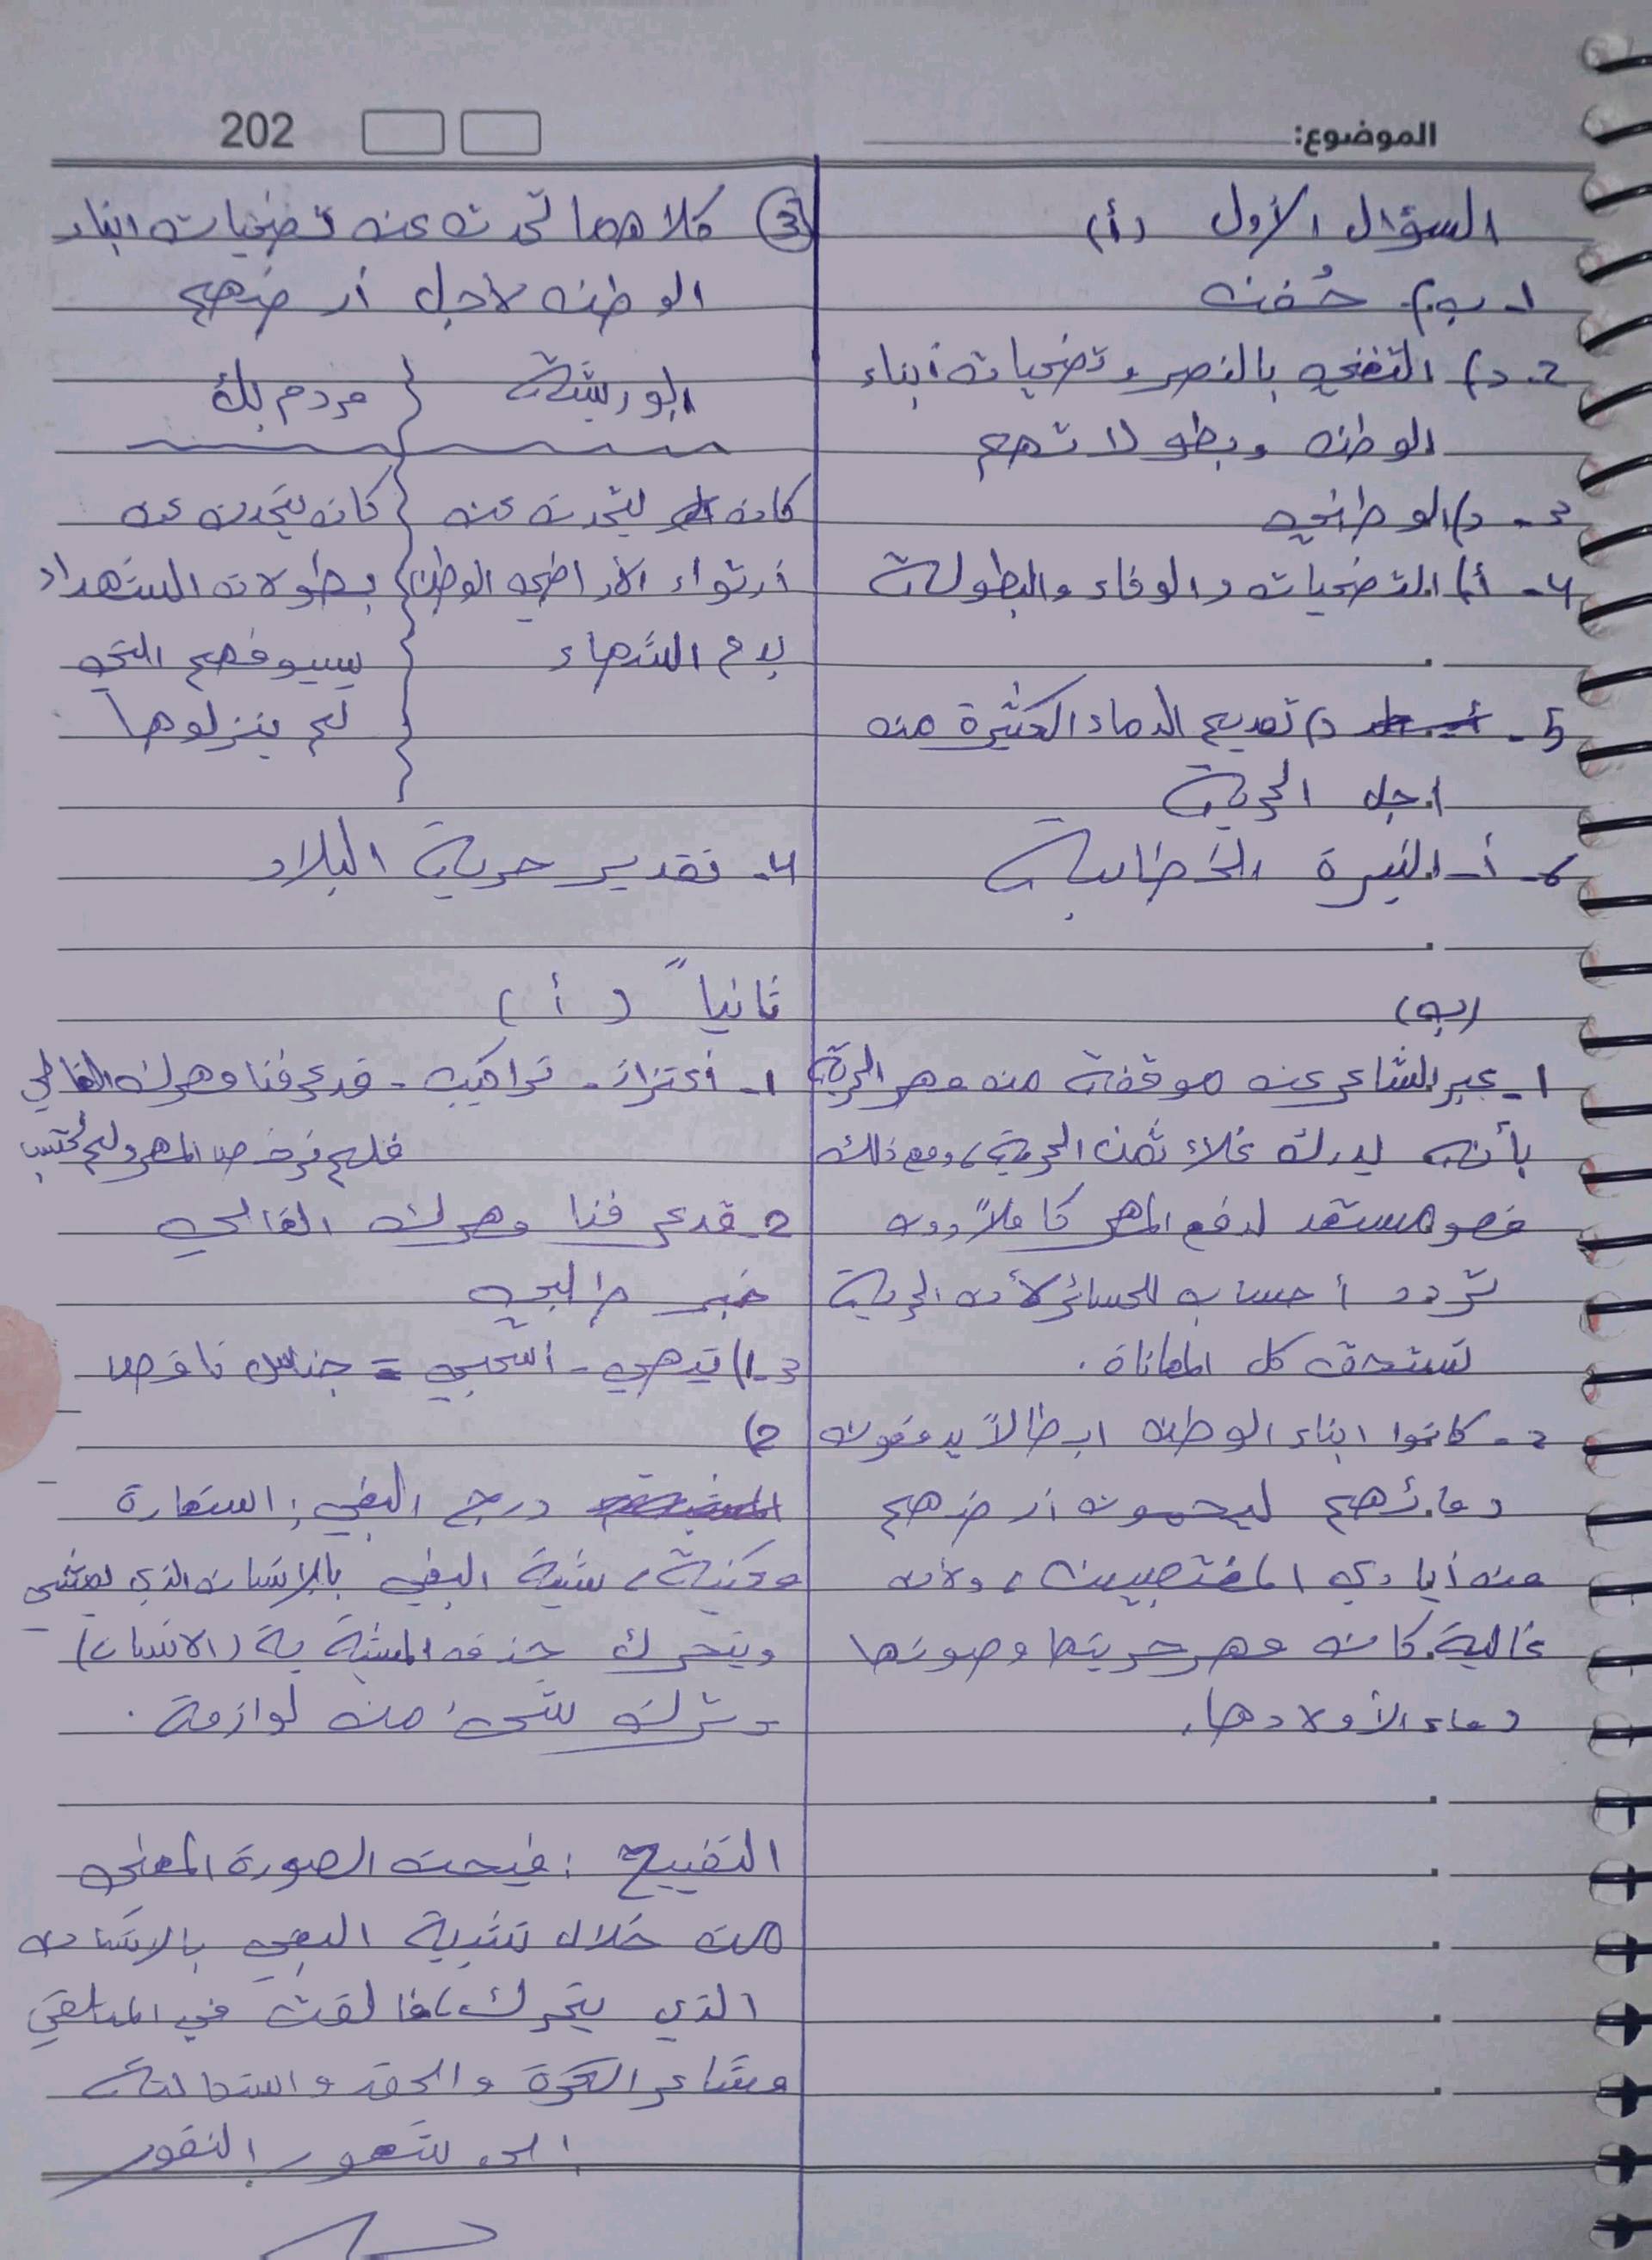 الموضوع:
202
السؤال الأول (أ)
1- ب) حُفنه
2- د) التغني بالنصر وتضحيات أبناء
الوطن وبطولاتهم
3- د) الوطني
4- أ) التضحيات والوفاء والبطولة
5- د) تقديم الدماء الكثيرة من
اجل الحرية
6- أ- النبرة الخطابية
(ب)
1- عبر الشاعر عن موقفة من مهر الحرية
بأنه يدرك غلاء ثمن الحرية، ومع ذلك
فهو مستعد لدفع المهر كاملاً دون
تردد أ حساب للخسائر لأن الحرية
تستحق كل المعاناة.
2- كانوا ابناء الوطن ابطالاً يدفعون
دمائهم ليحمون أرضهم
من أيادي المغتصبين، ولأن
غالية كان مهر حريتها وصونها
دماء الأولادها.
3 كلاهما تحدث عن تضحيات ابناء
الوطن لاجل أرضهم
ابو ريشة } مردم بك
كان يتحدث عن } كان يتحدث عن
أرتواء الأراضي الوطن } بطولات الشهداء
بدم الشهاء } بسيوفهم التي
لم ينزلوها
4- تقدير حرية البلاد
ثانياً (أ)
1- أعتزاز - تراكيب - قد عرفنا مهرك الغالي
فلم نرخص المهر ولم نحتسب
2- قد عرفنا مهرك الغالي
خبر طلبي
3- 1) تيهي - اسحبي = جناس ناقص
2)
درج البغي: استعارة
مكنية، شبة البغي بالإنسان الذي يمشي
ويتحرك حذف المشبة بة (الانسان)
وترك شيء من لوازمة.
التقبيح: قبحت الصورة المعنى
من خلال تشبية البغي بالإنسان
الذي يتحرك، القت في المتلقي
مشاعر الكرة والحقد واستمالتة
الى شعور النفور